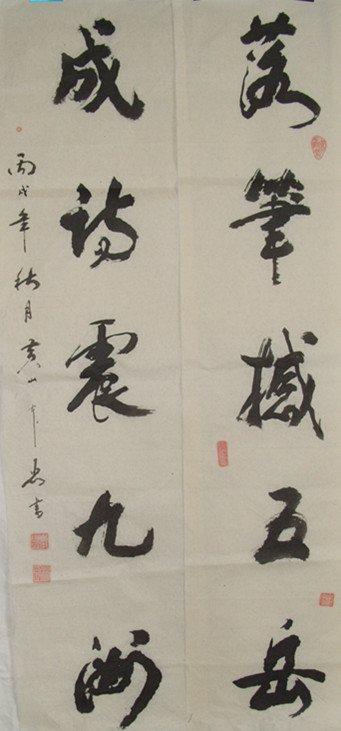 落筆撼五岳
成詩震九洲
丙戌年秋月黄山
書